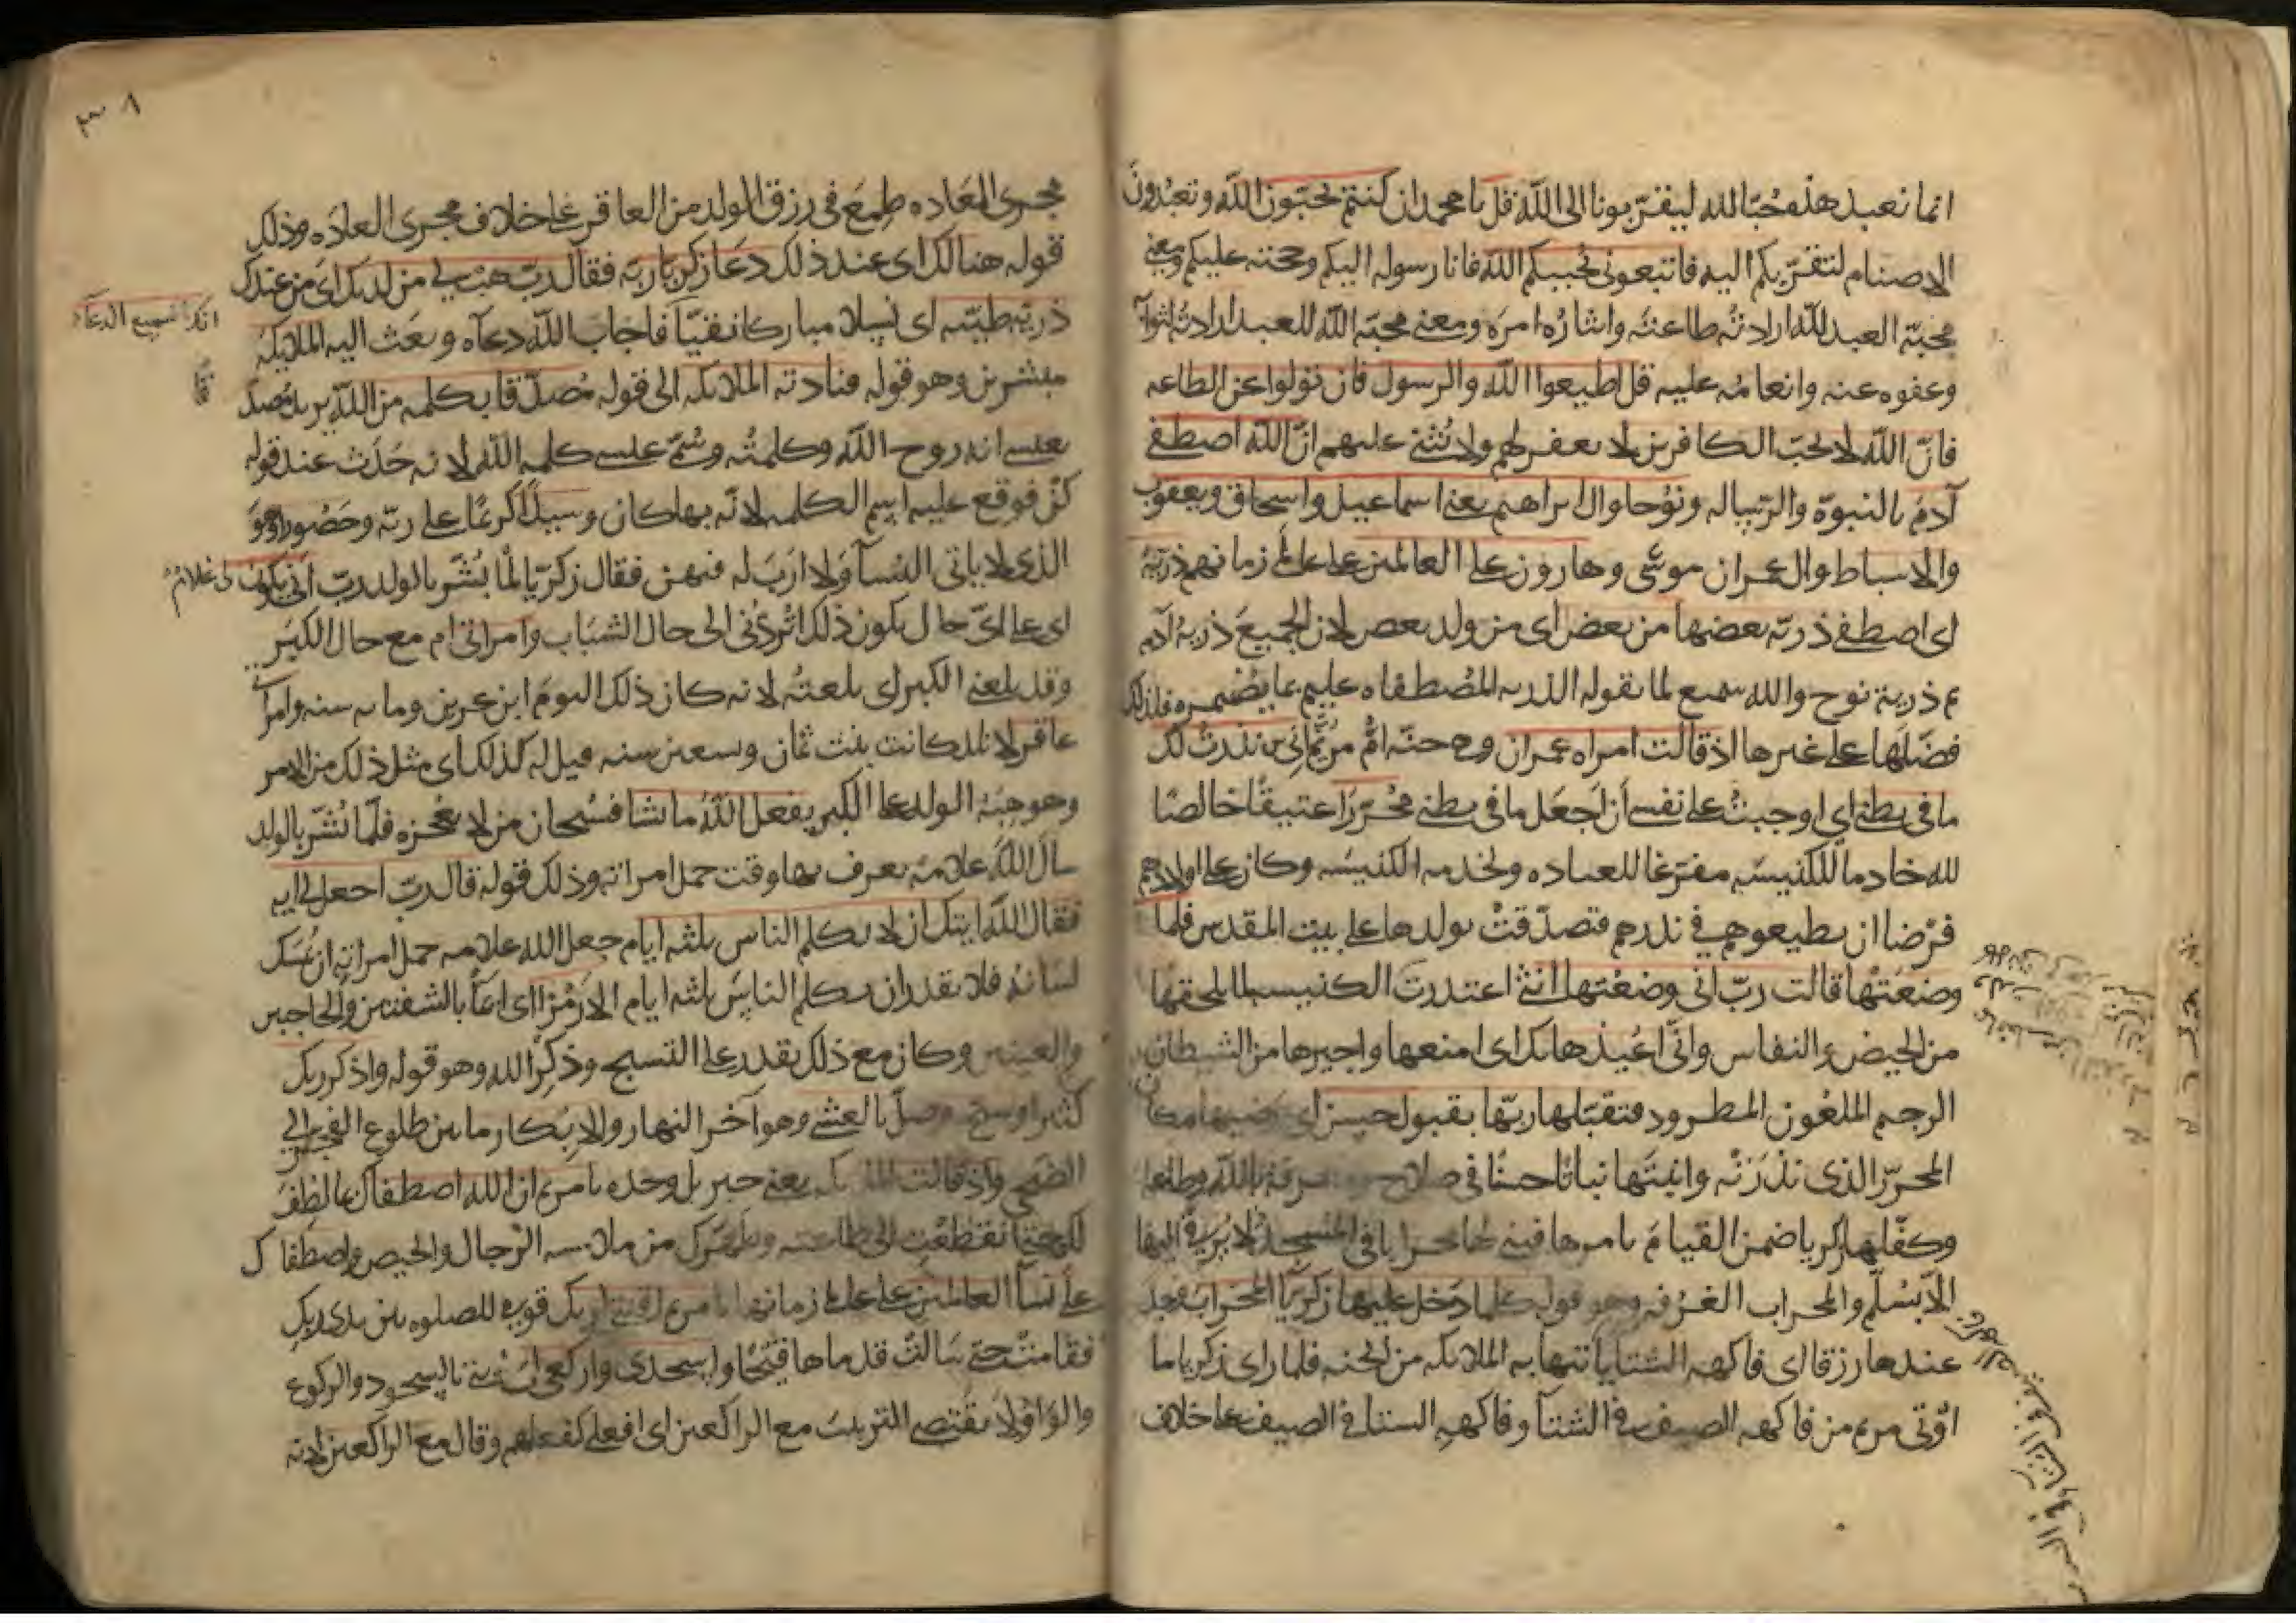 انما نعبد هذه حُبّا لله ليقرّبونا الى الله قل يا محمد ان كنتم تحبّون الله وتعبُدون
الاصنام لتقرّبكم اليه فاتبعونى يُحببكم الله فانا رسوله اليكم وحجته عليكم ومعنى
محبّة العبد لله ارادتُه طاعتَه وايثارُه امرَه ومعنى محبّة الله للعبد ارادتُه ثوابَه
وعفوه عنه وانعامُه عليه قل اطيعوا الله والرسول فان تولوا عن الطاعه
فانّ الله لا يحبّ الكافرين لا يغفر لهم ولا يُثنى عليهم انّ الله اصطفى
آدمَ بالنبوّة والرّساله ونوُحا وال ابراهيم يعنى اسماعيل واسحاق ويعقوب
والاسباط وال عمران موسى وهارون على العالمين على عالمى زمانهم ذريّة
اى اصطفى ذريّة بعضها من بعض اى من ولد بعض لان الجميعَ ذريّة آدم
ثم ذرية نوح والله سميع لما تقوله الذريه المُصطفاه عليم بما يُضمره فلذلك
فضّلها على غيرها اذ قالت امراه عمران وهى حنّه امُّ مريَم انى نذرتُ لك
ما فى بطنى اى اوجبتُ على نفسى أن اَجعَل ما فى بطنى مُحرّرًا عتيقًا خالصًا
لله خادما للكنيسَه مفترغا للعباده ولخدمه الكنيسَه وكان على اولادهم
فرْضا ان يطيعوهم فى نذرهم فتصدّقتْ بولدها على بيت المقدس فلما
وضعَتها قالت ربّ انى وضعتها انثى اعتذرت الكنيسه لما يلحقها
من الحيض والنفاس وانّى اعُيذها بك اى امنعها واجيرها من الشيطان
الرجيم الملعُون المطرود فتقبّلها ربّها بقبول حسن اى رضيها مكان
المحرّر الذى نذرَتْه وانبتَها نباتًا حسنًا فى صلاح ومعرفة بالله وطاعه
وكفّلها زكريا ضمن القيامَ بامرها فبنى لها محرابا فى المسجد لا يُرتقى اليها
الّا بسُلّم والمحراب الغرفه وهو قوله كلما دخل عليها زكريّا المحراب وجد
عندها رزقا اى فاكهه الشتا ياتيها به الملائكه من الجنه فلما راى زكريا ما
اوُتى مريم من فاكهه الصيف فى الشتآ وفاكهه الشتا فى الصيف على خلاف
مجرى العَاده طمِعَ فى رزق الولد من العاقر على خلاف مجرى العادَه وذلك
قوله هنالك اى عند ذلك دعَا زكريّا ربّه فقال ربّ هب لى من لدنك اى من عندك
ذريّة طيّبه اى نسلا مباركا تقيّا فاجابَ الله دعآه وبعَث اليه الملائكة
انك سميع الدعآء
مبشرين وهو قوله فنادته الملائكه الى قوله مُصدّقا بكلمه من الله يريد مُصدّ
قًا
بعيسى انه روح الله وكلمتُه وسُمّى عيسى كلمه الله لانه حَدَث عند قوله
كنْ فوقع عليه اسم الكلمه لانّه بها كان وسيدًا كريمًا على ربّه وحَصُورا وهوَ
الذى لا ياتى النسآ ولا ارَبَ له فيهن فقال زكريّا لمّا بُشّر بالولد ربّ انّى يكون لى غلامٌ
اى على اىّ حال يكون ذلك اتُردّنى الى حال الشبَاب وامراتى ام مع حال الكبَر
وقد بلغنى الكبر اى بلغتُه لانه كان ذلك اليومَ ابن عشرين ومايه سنه وامرأ
عاقر لا تلد كانت بنت ثمان وتسعين سنه قيل له كذلك اى مثل ذلك من الامر
وهو هبَة الولد على الكبر يفعل الله ما يشا فسُبحان من لا يعجزه فلمّا بُشّر بالولد
سال الله علامة يعرف بها وقت حمل امراته وذلك قوله قال ربّ اجعل لى ايه
فقال الله ايتك ان لا تكلم الناس ثلثه ايام جعل الله علامه حمل امراته ان يُمسك
لسَانه فلا يقدر ان يكلم الناسَ ثلثه ايام الا رمْزا اى ايماًء بالشفتين والحاجبين
والعينين وكان مع ذلك يقدر على التسبيح وذكر الله وهو قوله واذكر ربك
كثيرا وسبح وصلّ بالعشى وهو آخر النهار والابكار ما بين طلوع الفجر الى
الضحى واذ قالت الملائكه يعنى جبريل وحده يا مريم ان الله اصطفاك بما لطفَ
لك حتى انقطعت الى طاعته وطهّرك من ملامسه الرّجال والحيض واصطفاك
على نسآ العالمين على عالمى زمانها يا مريم اقنتى لربك قومى للصلوه بين يدى ربك
فقامت حتى سَالت قدماها قيحًا واسجدى واركعى
والواو لا يقتضى الترتيبَ مع الراكعين اى افعلى كفعلهم وقال مع الراكعين لانه